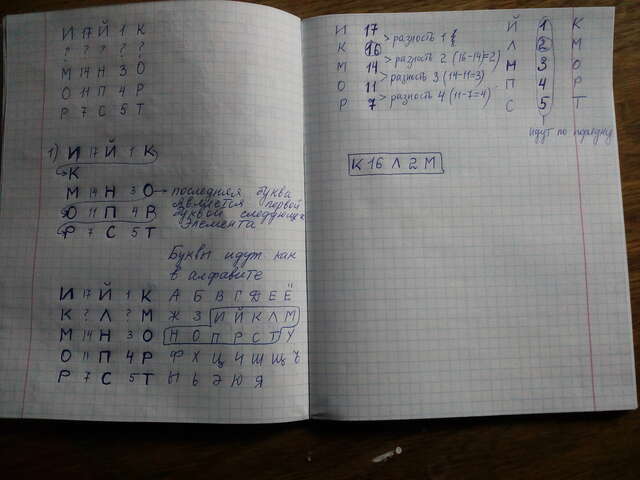 И 17 Й 1 К
? ? ? ? ?
М 14 Н 3 О
О 11 П 4 Р
Р 7 С 5 Т
1) И 17 Й 1 К
К
М 14 Н 3 О → последняя буква
является первой
О 11 П 4 Р буквой следующего
Р 7 С 5 Т элемента
Буквы идут как
в алфавите
И 17 Й 1 К А Б В Г Д Е Ё
К ? Л ? М Ж З И Й К Л М
М 14 Н 3 О Н О П Р С Т У
О 11 П 4 Р Ф Х Ц Ч Ш Щ Ъ
Р 7 С 5 Т Ы Ь Э Ю Я
И 17 Й 1 К
> разность 1
К 16 Л 2 М
> разность 2 (16-14=2)
М 14 М 3 О
> разность 3 (14-11=3)
О 11 П 4 Р
> разность 4 (11-7=4)
Р 7 С 5 Т
идут по порядку
К 16 Л 2 М